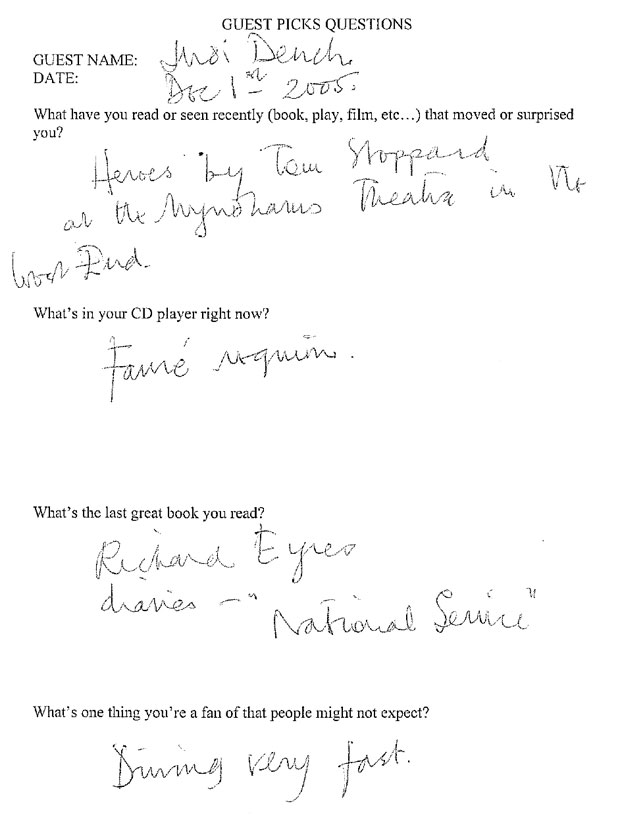 GUEST PICKS QUESTIONS
GUEST NAME: Judi Dench.
DATE: Dec 1st 2005.
What have you read or seen recently (book, play, film, etc…) that moved or surprised
you?
Heroes by Tom Stoppard
at the Wyndhams Theatre in the
West End.
What's in your CD player right now?
Fauré requiem.
What's the last great book you read?
Richard Eyres
diaries – "
National Service"
What's one thing you're a fan of that people might not expect?
Driving very fast.